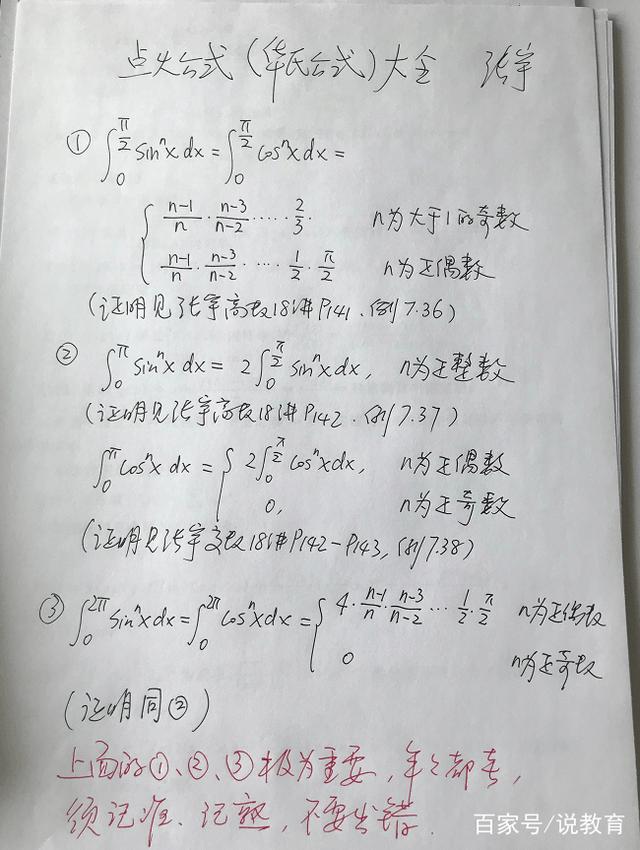 点火公式(华氏公式)大全 张宇
① ∫₀^(π/2) sinⁿx dx = ∫₀^(π/2) cosⁿx dx =
{ (n-1)/n · (n-3)/(n-2) · ⋯ · 2/3 · n为大于1的奇数
(n-1)/n · (n-3)/(n-2) · ⋯ · 1/2 · π/2 n为正偶数
(证明见张宇高数18讲P141.例7.36)
② ∫₀^π sinⁿx dx = 2∫₀^(π/2) sinⁿx dx, n为正整数
(证明见张宇高数18讲P142.例7.37)
∫₀^π cosⁿx dx = { 2∫₀^(π/2) cosⁿx dx, n为正偶数
0, n为正奇数
(证明见张宇高数18讲P142-P143,例7.38)
③ ∫₀^(2π) sinⁿx dx = ∫₀^(2π) cosⁿx dx = { 4 · (n-1)/n · (n-3)/(n-2) ⋯ 1/2 · π/2 n为正偶数
0 n为正奇数
(证明同②)
上面的①、②、③极为重要,年年都考,
须记准、记熟,不要出错.
百家号/说教育